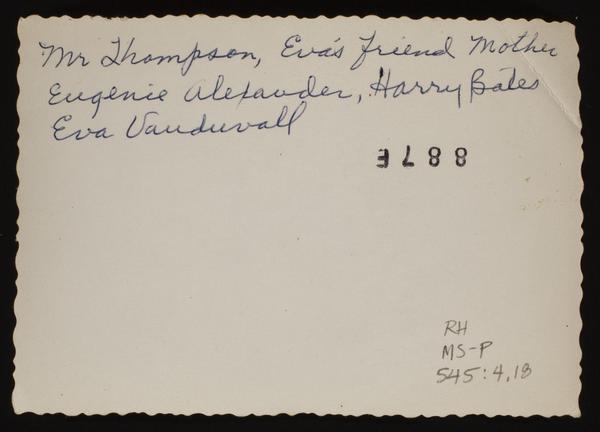 Mr Thompson, Eva's friend Mother
Eugenie Alexander, Harry Bates
Eva Vanduvall
88 7 E
RH
MS-P
545:4.18